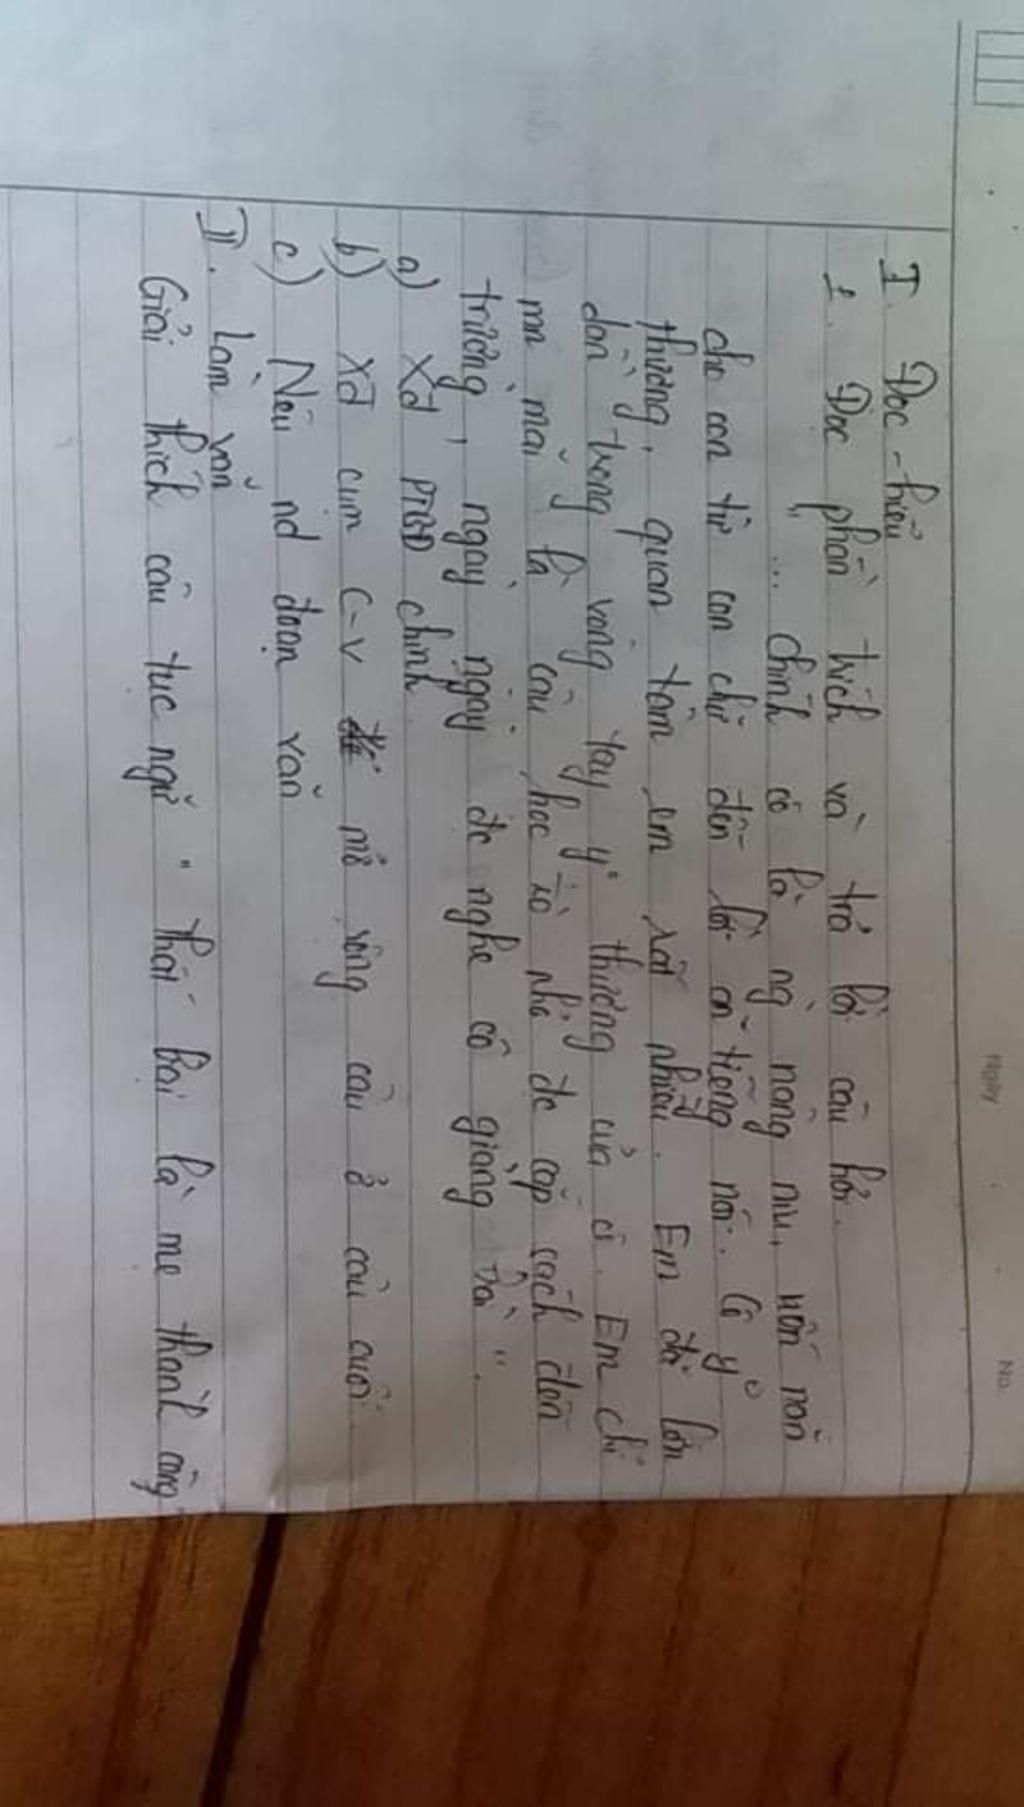 Ngày
No.
I. Đọc - hiểu
1. Đọc phần trích và trả lời câu hỏi.
"... chính cô là ng nâng niu, uốn nắn
cho con từ con chữ đến lời ăn tiếng nói. Cô y
thương, quan tâm em rất nhiều. Em đã lớn
dần trong vòng tay y thương của cô. Em chỉ
mn mãi là cậu học trò nhỏ đc cắp sách đến
trường, ngày ngày đc nghe cô giảng bài".
a) Xđ PTBĐ chính
b) Xđ cụm C-V mở rộng câu ở câu cuối.
c) Nêu nd đoạn văn
II. Làm văn
Giải thích câu tục ngữ "thất bại là mẹ thành công